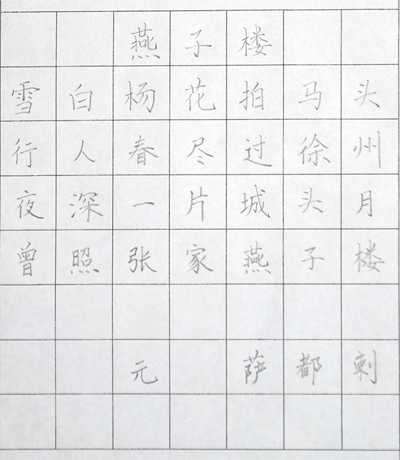 燕子楼
雪白杨花拍马头
行人春尽过徐州
夜深一片城头月
曾照张家燕子楼
元 萨都剌